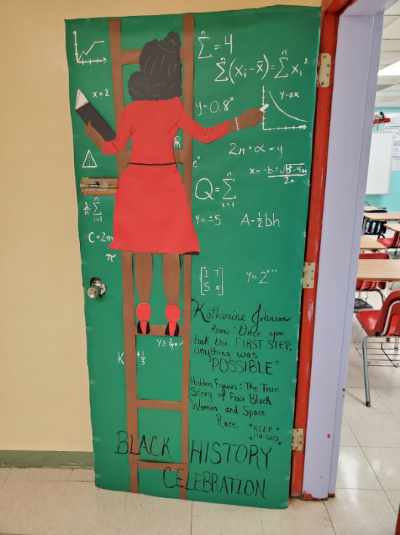 Σ = 4
Σ(xᵢ - x̄) = Σ xᵢ²
x = 2
y = 0.8ˣ
2π + α = 4
Q = Σ
y = ±5
A = ½bh
C = 2π
π
y = 2
K
Katharine Johnson
Know: Once you
took the FIRST STEP,
anything was
"POSSIBLE"
Hidden Figures: The True
Story of Four Black
Women and Space
Race.
BLACK HISTORY
CELEBRATION